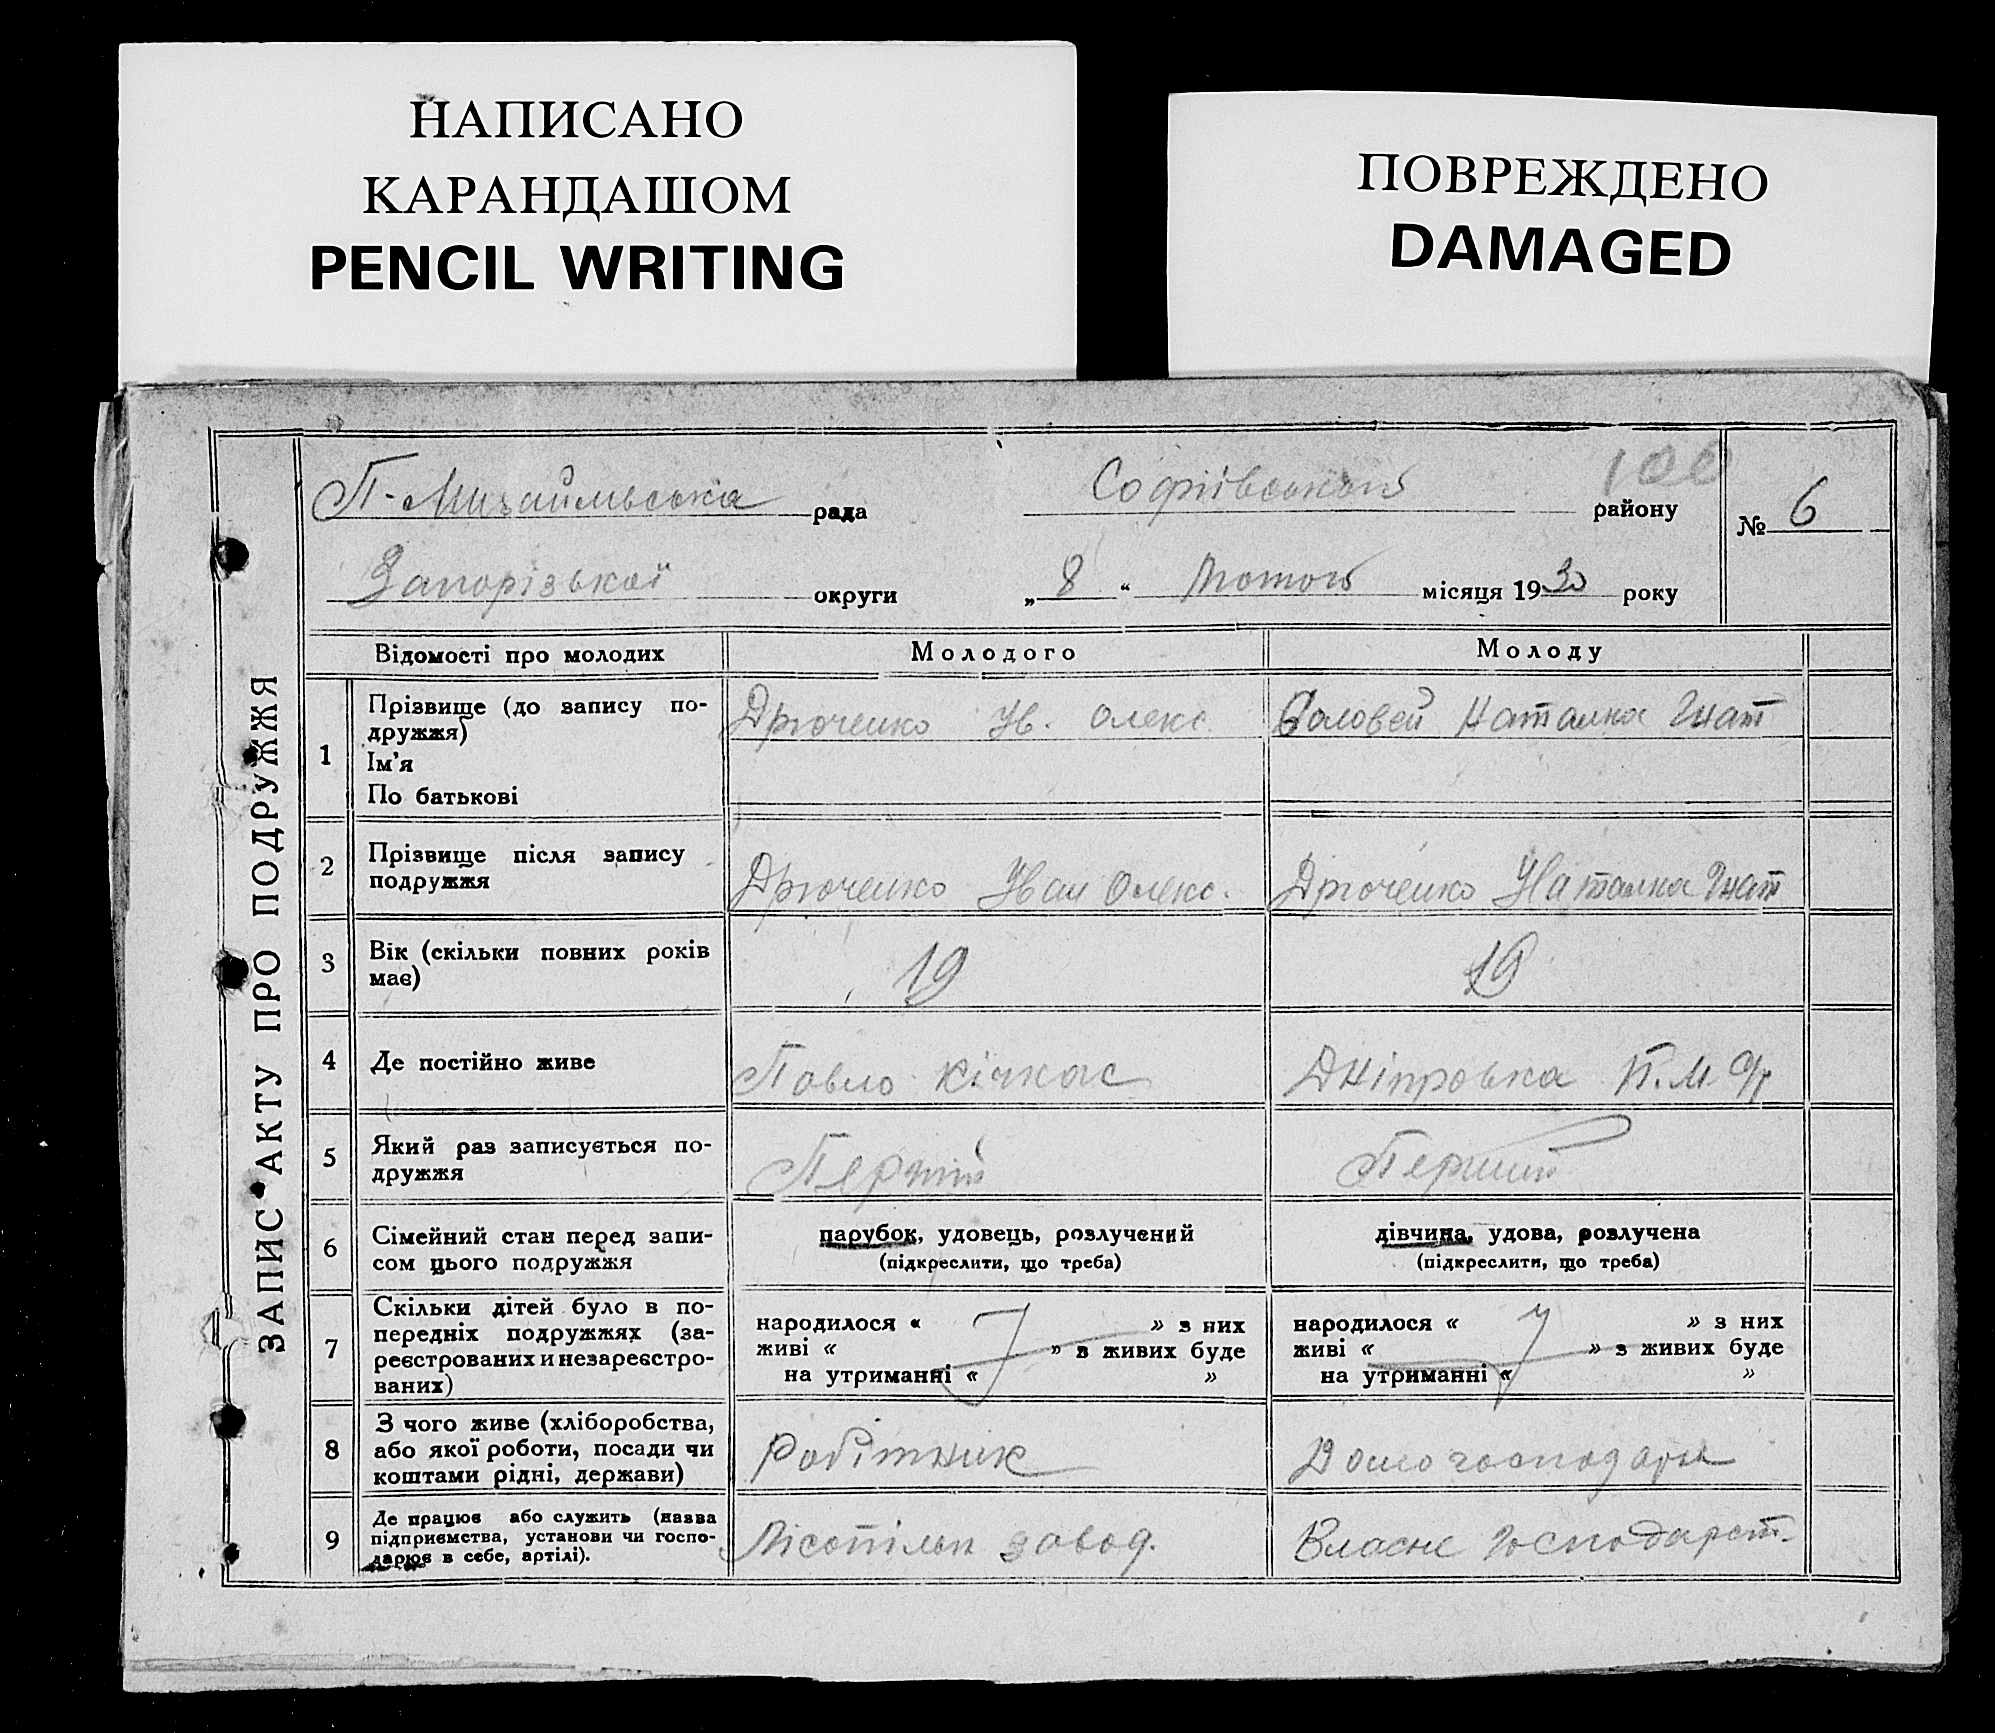 НАПИСАНО
КАРАНДАШОМ
PENCIL WRITING
ПОВРЕЖДЕНО
DAMAGED
ЗАПИС АКТУ ПРО ПОДРУЖЖЯ
100
П-Михайлівська рада Софіївського району № 6
Запорізької округи „ 8 “ Лютого місяця 1930 року
Відомості про молодих Молодого Молоду
1 Прізвище (до запису по-
дружжя)
Ім’я
По батькові
Дрюченко Ів. Олекс. Соловей Наталка Гнат
2 Прізвище після запису
подружжя
Дрюченко Іван Олекс. Дрюченко Наталка Гнат
3 Вік (скільки повних років
має)
19 19
4 Де постійно живе Павло Кічкас Дніпровка П.М.
5 Який раз записується по-
дружжя
Перший Перший
6 Сімейний стан перед запи-
сом цього подружжя
парубок, удовець, розлучений
(підкреслити, що треба)
дівчина, удова, розлучена
(підкреслити, що треба)
7 Скільки дітей було в по-
передніх подружжях (за-
реєстрованих и незареєстро-
ваних)
народилося « » з них
живі « » з живих буде
на утриманні « »
народилося « » з них
живі « » з живих буде
на утриманні « »
8 З чого живе (хліборобства,
або якої роботи, посади чи
коштами рідні, держави)
Робітник Домогосподарка
9 Де працює або служить (назва
підприємства, установи чи госпо-
дарює в себе, артілі).
Лісопільн завод. Власне господарст.